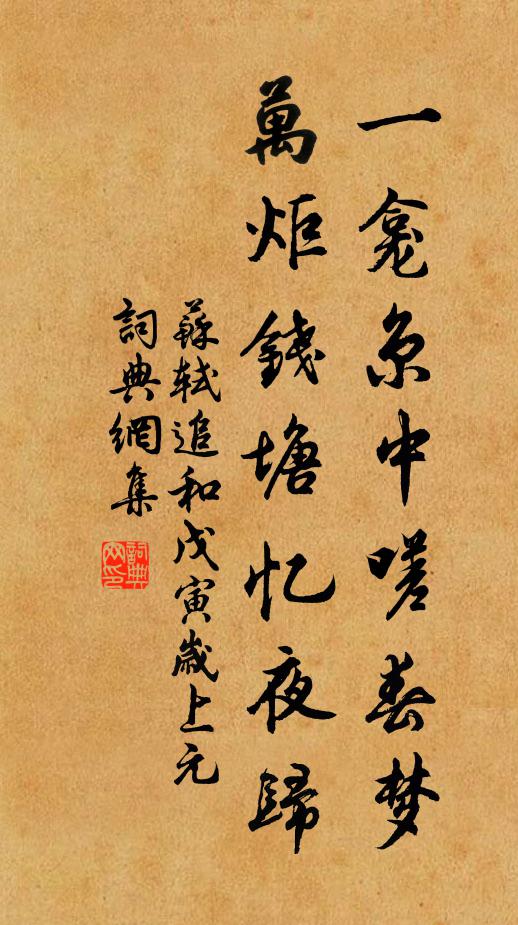 一龛京中嗟春梦
萬炬錢塘忆夜歸
蘇軾追和戊寅歲上元
詞典網集
詞典
网印